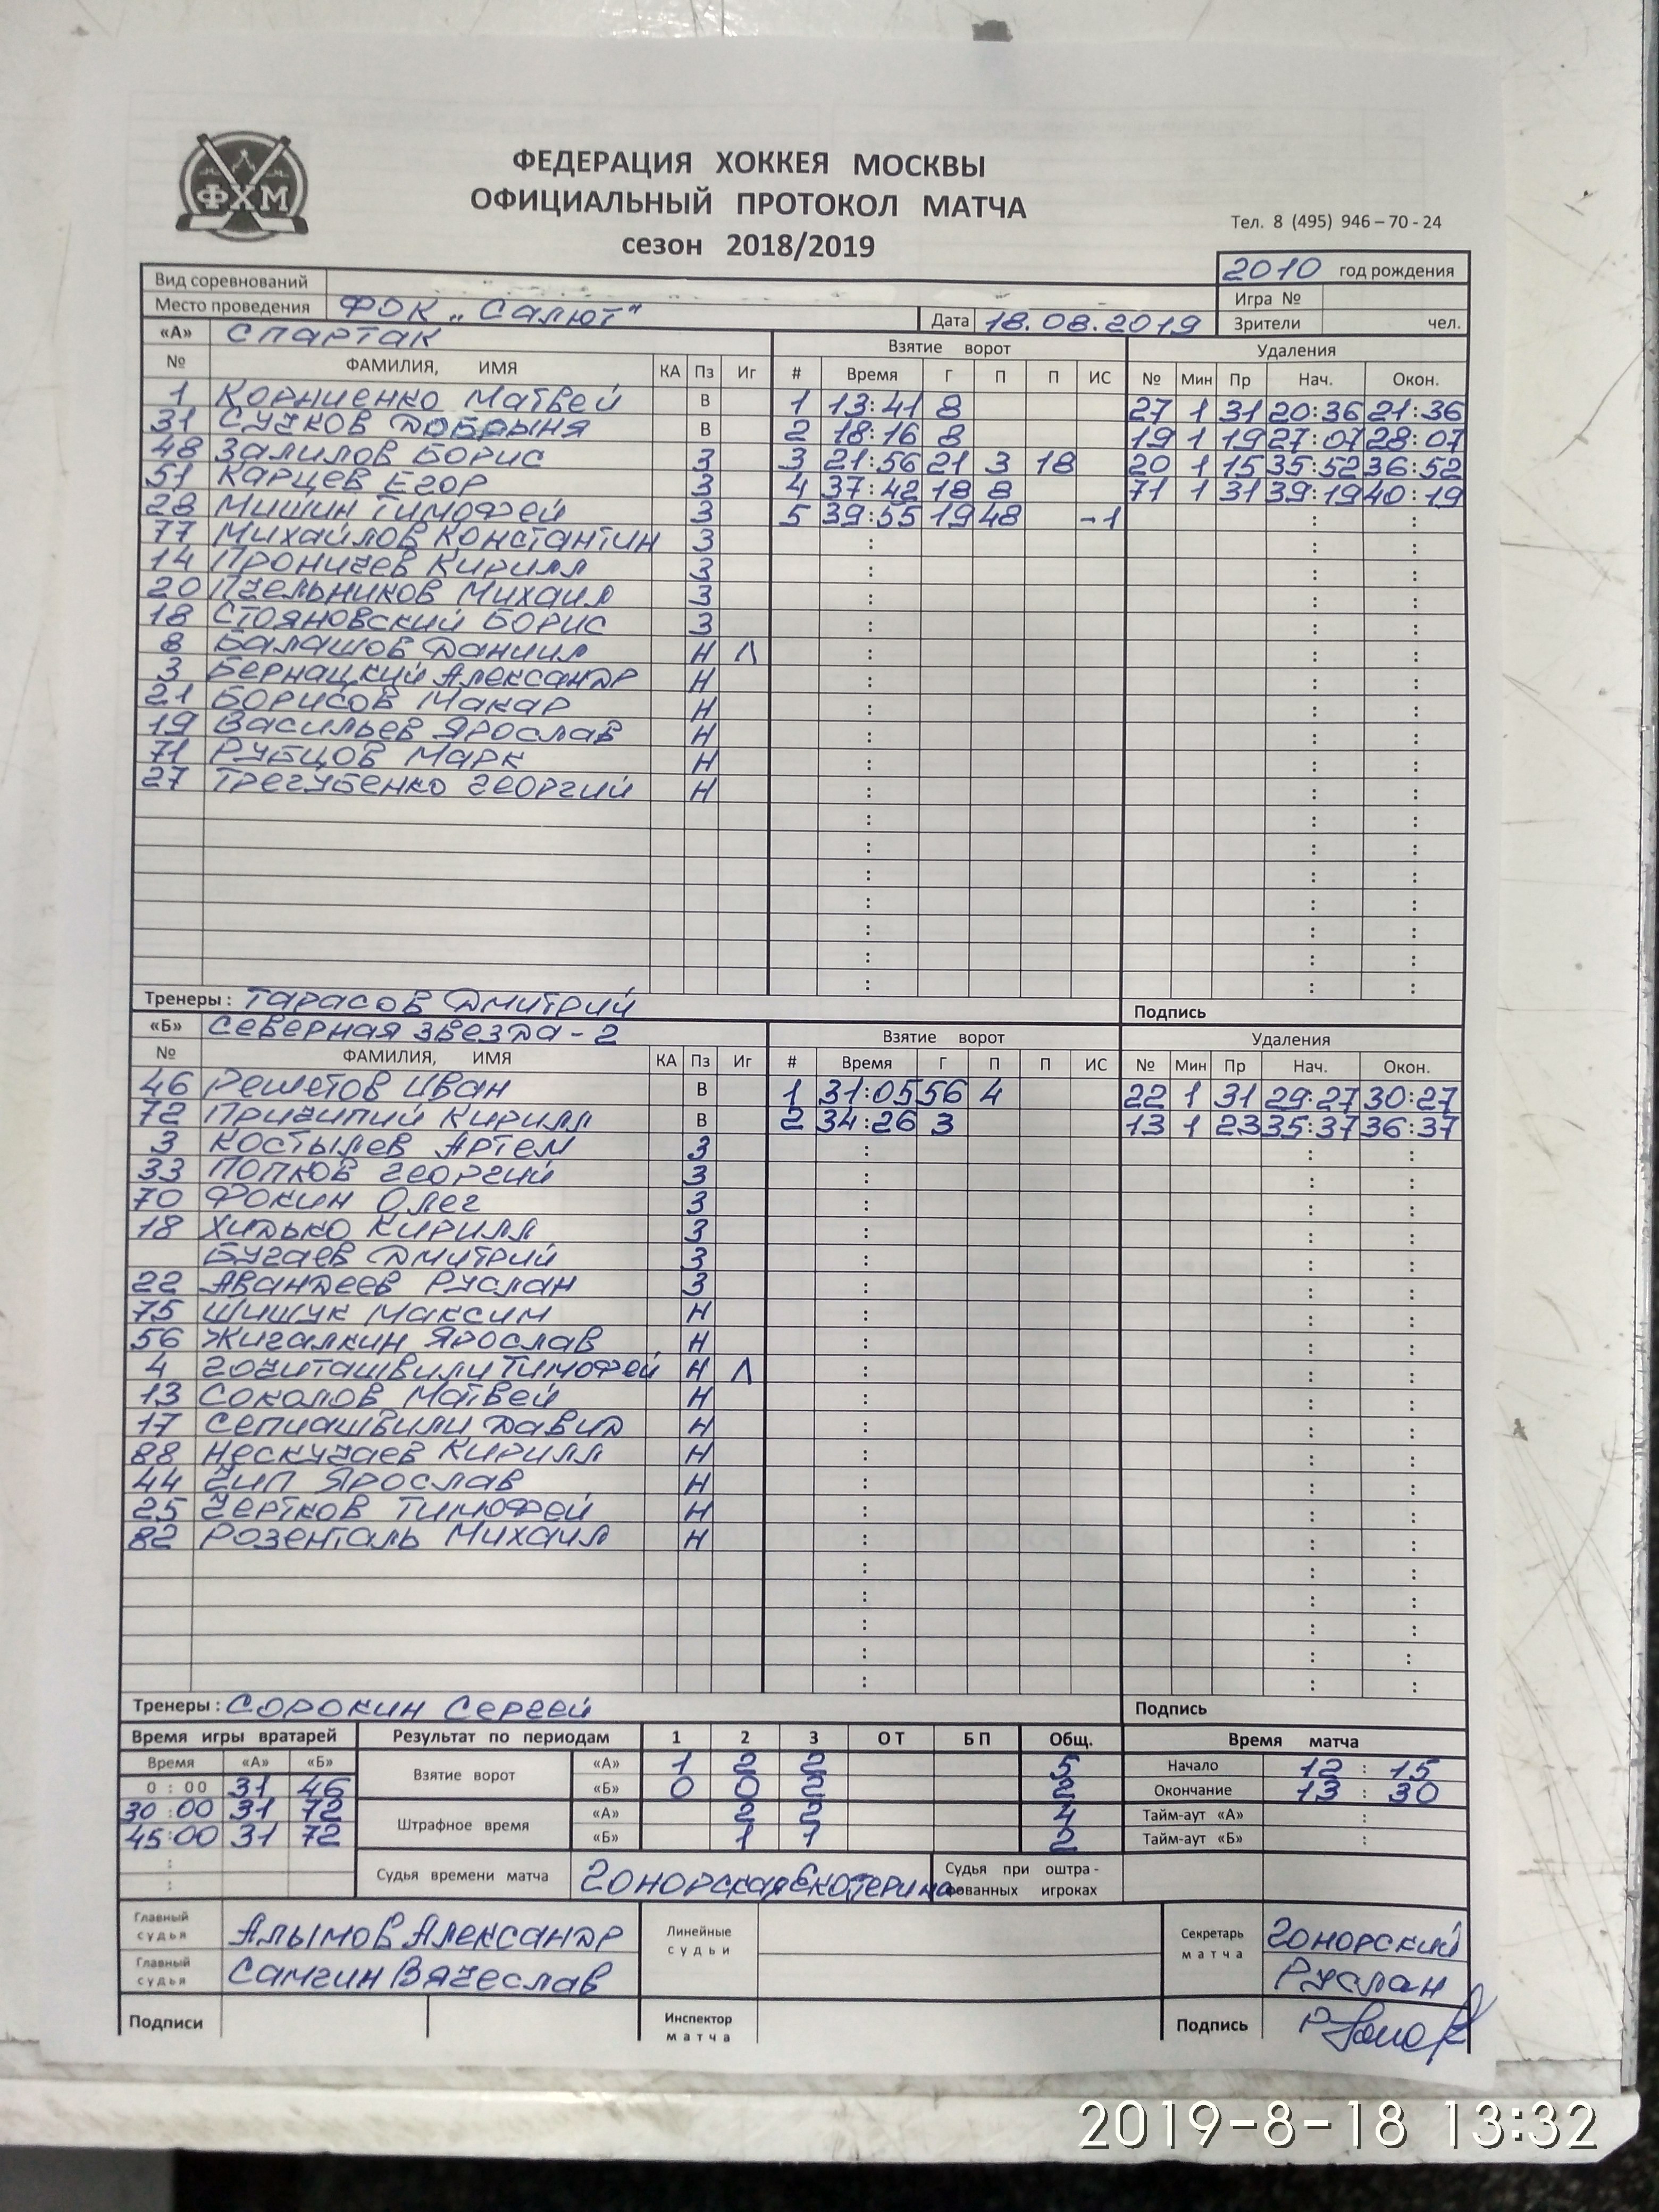 ФХМ
ФЕДЕРАЦИЯ ХОККЕЯ МОСКВЫ
ОФИЦИАЛЬНЫЙ ПРОТОКОЛ МАТЧА
сезон 2018/2019
Тел. 8 (495) 946–70-24
Вид соревнований 2010 год рождения
Место проведения ФОК „Салют" Дата 18.08.2019 Игра №
Зрители чел.
«А» Спартак Взятие ворот Удаления
№ ФАМИЛИЯ, ИМЯ КА Пз Иг # Время Г П П ИС № Мин Пр Нач. Окон.
1 Корниенко Матвей В 1 13:41 8 27 1 31 20:36 21:36
31 Сучков Добрыня В 2 18:16 8 19 1 19 27:07 28:07
48 Залилов Борис З 3 21:56 21 3 18 20 1 15 35:52 36:52
51 Карцев Егор З 4 37:42 18 8 71 1 31 39:19 40:19
28 Мишин Тимофей З 5 39:55 19 48 -1
77 Михайлов Константин З
14 Проничев Кирилл З
20 Пчельников Михаил З
18 Стояновский Борис З
8 Балашов Даниил Н Л
3 Бернацкий Александр Н
21 Борисов Макар Н
19 Васильев Ярослав Н
71 Рубцов Марк Н
27 Трегубенко Георгий Н
Тренеры : Тарасов Дмитрий Подпись
«Б» Северная звезда-2 Взятие ворот Удаления
№ ФАМИЛИЯ, ИМЯ КА Пз Иг # Время Г П П ИС № Мин Пр Нач. Окон.
46 Решетов Иван В 1 31:05 56 4 22 1 31 29:27 30:27
72 Причипий Кирилл В 2 34:26 3 13 1 23 35:37 36:37
3 Костылев Артем З
33 Попков Георгий З
70 Фокин Олег З
18 Хидько Кирилл З
Бугаев Дмитрий З
22 Авандеев Руслан З
75 Шишук Максим Н
56 Жигалкин Ярослав Н
4 Гочиташвили Тимофей Н Л
13 Соколов Матвей Н
17 Сепиашвили Давид Н
88 Нескучаев Кирилл Н
44 Чип Ярослав Н
25 Чертков Тимофей Н
82 Розенталь Михаил Н
Тренеры : Сорокин Сергей Подпись
Время игры вратарей Результат по периодам 1 2 3 ОТ БП Общ. Время матча
Время «А» «Б» Взятие ворот «А» 1 2 2 5 Начало 12 : 15
0 : 00 31 46 «Б» 0 0 2 2 Окончание 13 : 30
30:00 31 72 Штрафное время «А» 2 2 4 Тайм-аут «А» :
45:00 31 72 «Б» 1 1 2 Тайм-аут «Б» :
Судья времени матча Гонорская Екатерина Судья при оштра-
фованных игроках
Главный судья Алымов Александр Линейные судьи Секретарь матча Гонорский
Главный судья Самгин Вячеслав Руслан
Подписи Инспектор матча Подпись
2019-8-18 13:32